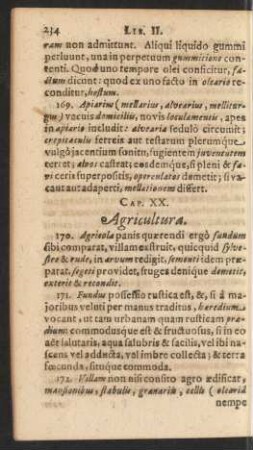 234 LIB. II.
ram non admittunt. Aliqui liquido gummi
perluunt, una in perpetuum gummitione con-
tenti. Quod uno tempore olei conficitur, fa-
ctum dicunt: quod ex uno facto in oleario re-
conditur, hostum.
169. Apiarius (mellarius, alvearius, mellitur-
gus) vacuis domiciliis, novis loculamentis, apes
in apiario includit: alvearia sedulò circumit;
crepitaculo ferreis aut testarum plerumque
vulgò jacentium sonitu, fugientem juventutem
terret; alvos castrat; easdemque, si pleni & fa-
vi ceris superpositis, operculatos demetit; si va-
cant aut adaperti, mellationem differt.
CAP. XX.
Agricultura.
170. Agricola panis quærendi ergò fundum
sibi comparat, villam exstruit, quicquid sylve-
stre & rude, in arvum redigit. sementi idem præ-
parat. segeti providet, fruges denique demetit,
exterit & recondit.
171. Fundus possessio rustica est, &, si à ma-
joribus veluti per manus traditus, hæredium
vocant, ut tam urbanam quàm rusticam præ-
dium: commodusque est & fructuosus, si in eo
aër salutaris, aqua salubris & facilis, vel ibi na-
scens vel adducta, vel imbre collecta; & terra
fœcunda, situque commoda.
172. Villam non nisi consito agro ædificat,
mansionibus, stabulis, granariis, cellis (olearia
nempe